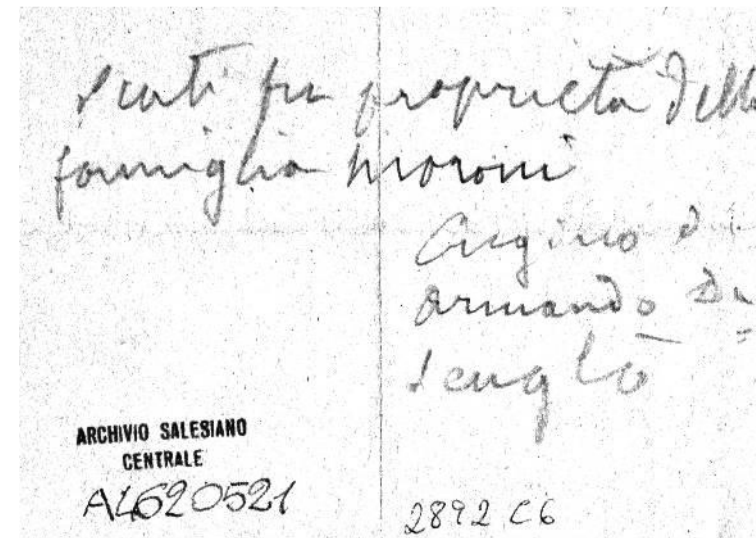 fu proprietà della
famiglia Moroni
Cugino di
Armando
ARCHIVIO SALESIANO
CENTRALE
A4620521
2892 C6